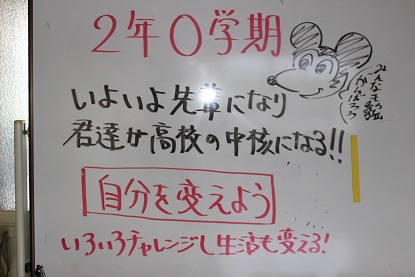 2年0学期
いよいよ先輩になり
君達が高校の中核になる!!
自分を変えよう
いろいろチャレンジし生活も変える!
みんなで
がんばろう